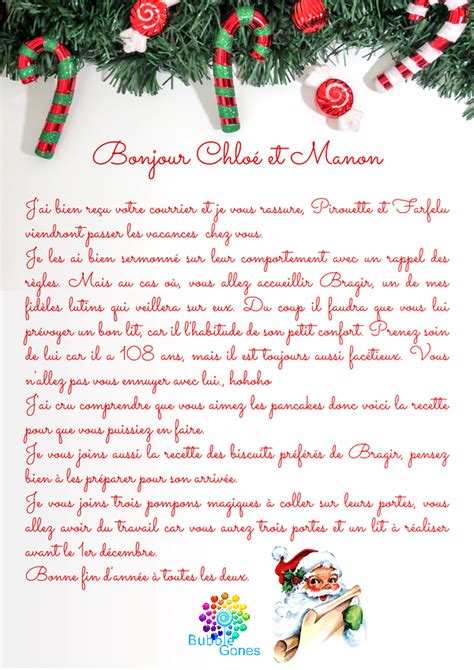 Bonjour Chloé et Manon
J'ai bien reçu votre courrier et je vous rassure, Pirouette et Farfelu
viendront passer les vacances chez vous.
Je les ai bien sermonné sur leur comportement avec un rappel des
règles. Mais au cas où, vous allez accueillir Bragir, un de mes
fidèles lutins qui veillera sur eux. Du coup il faudra que vous lui
prévoyer un bon lit, car il l'habitude de son petit confort. Prenez soin
de lui car il a 108 ans, mais il est toujours aussi facétieux. Vous
n'allez pas vous ennuyer avec lui., hohoho
J'ai cru comprendre que vous aimez les pancakes donc voici la recette
pour que vous puissiez en faire.
Je vous joins aussi la recette des biscuits préférés de Bragir, pensez
bien à les préparer pour son arrivée.
Je vous joins trois pompons magiques à coller sur leurs portes, vous
allez avoir du travail car vous aurez trois portes et un lit à réaliser
avant le 1er décembre.
Bonne fin d'année à toutes les deux.
Bubble
Gones